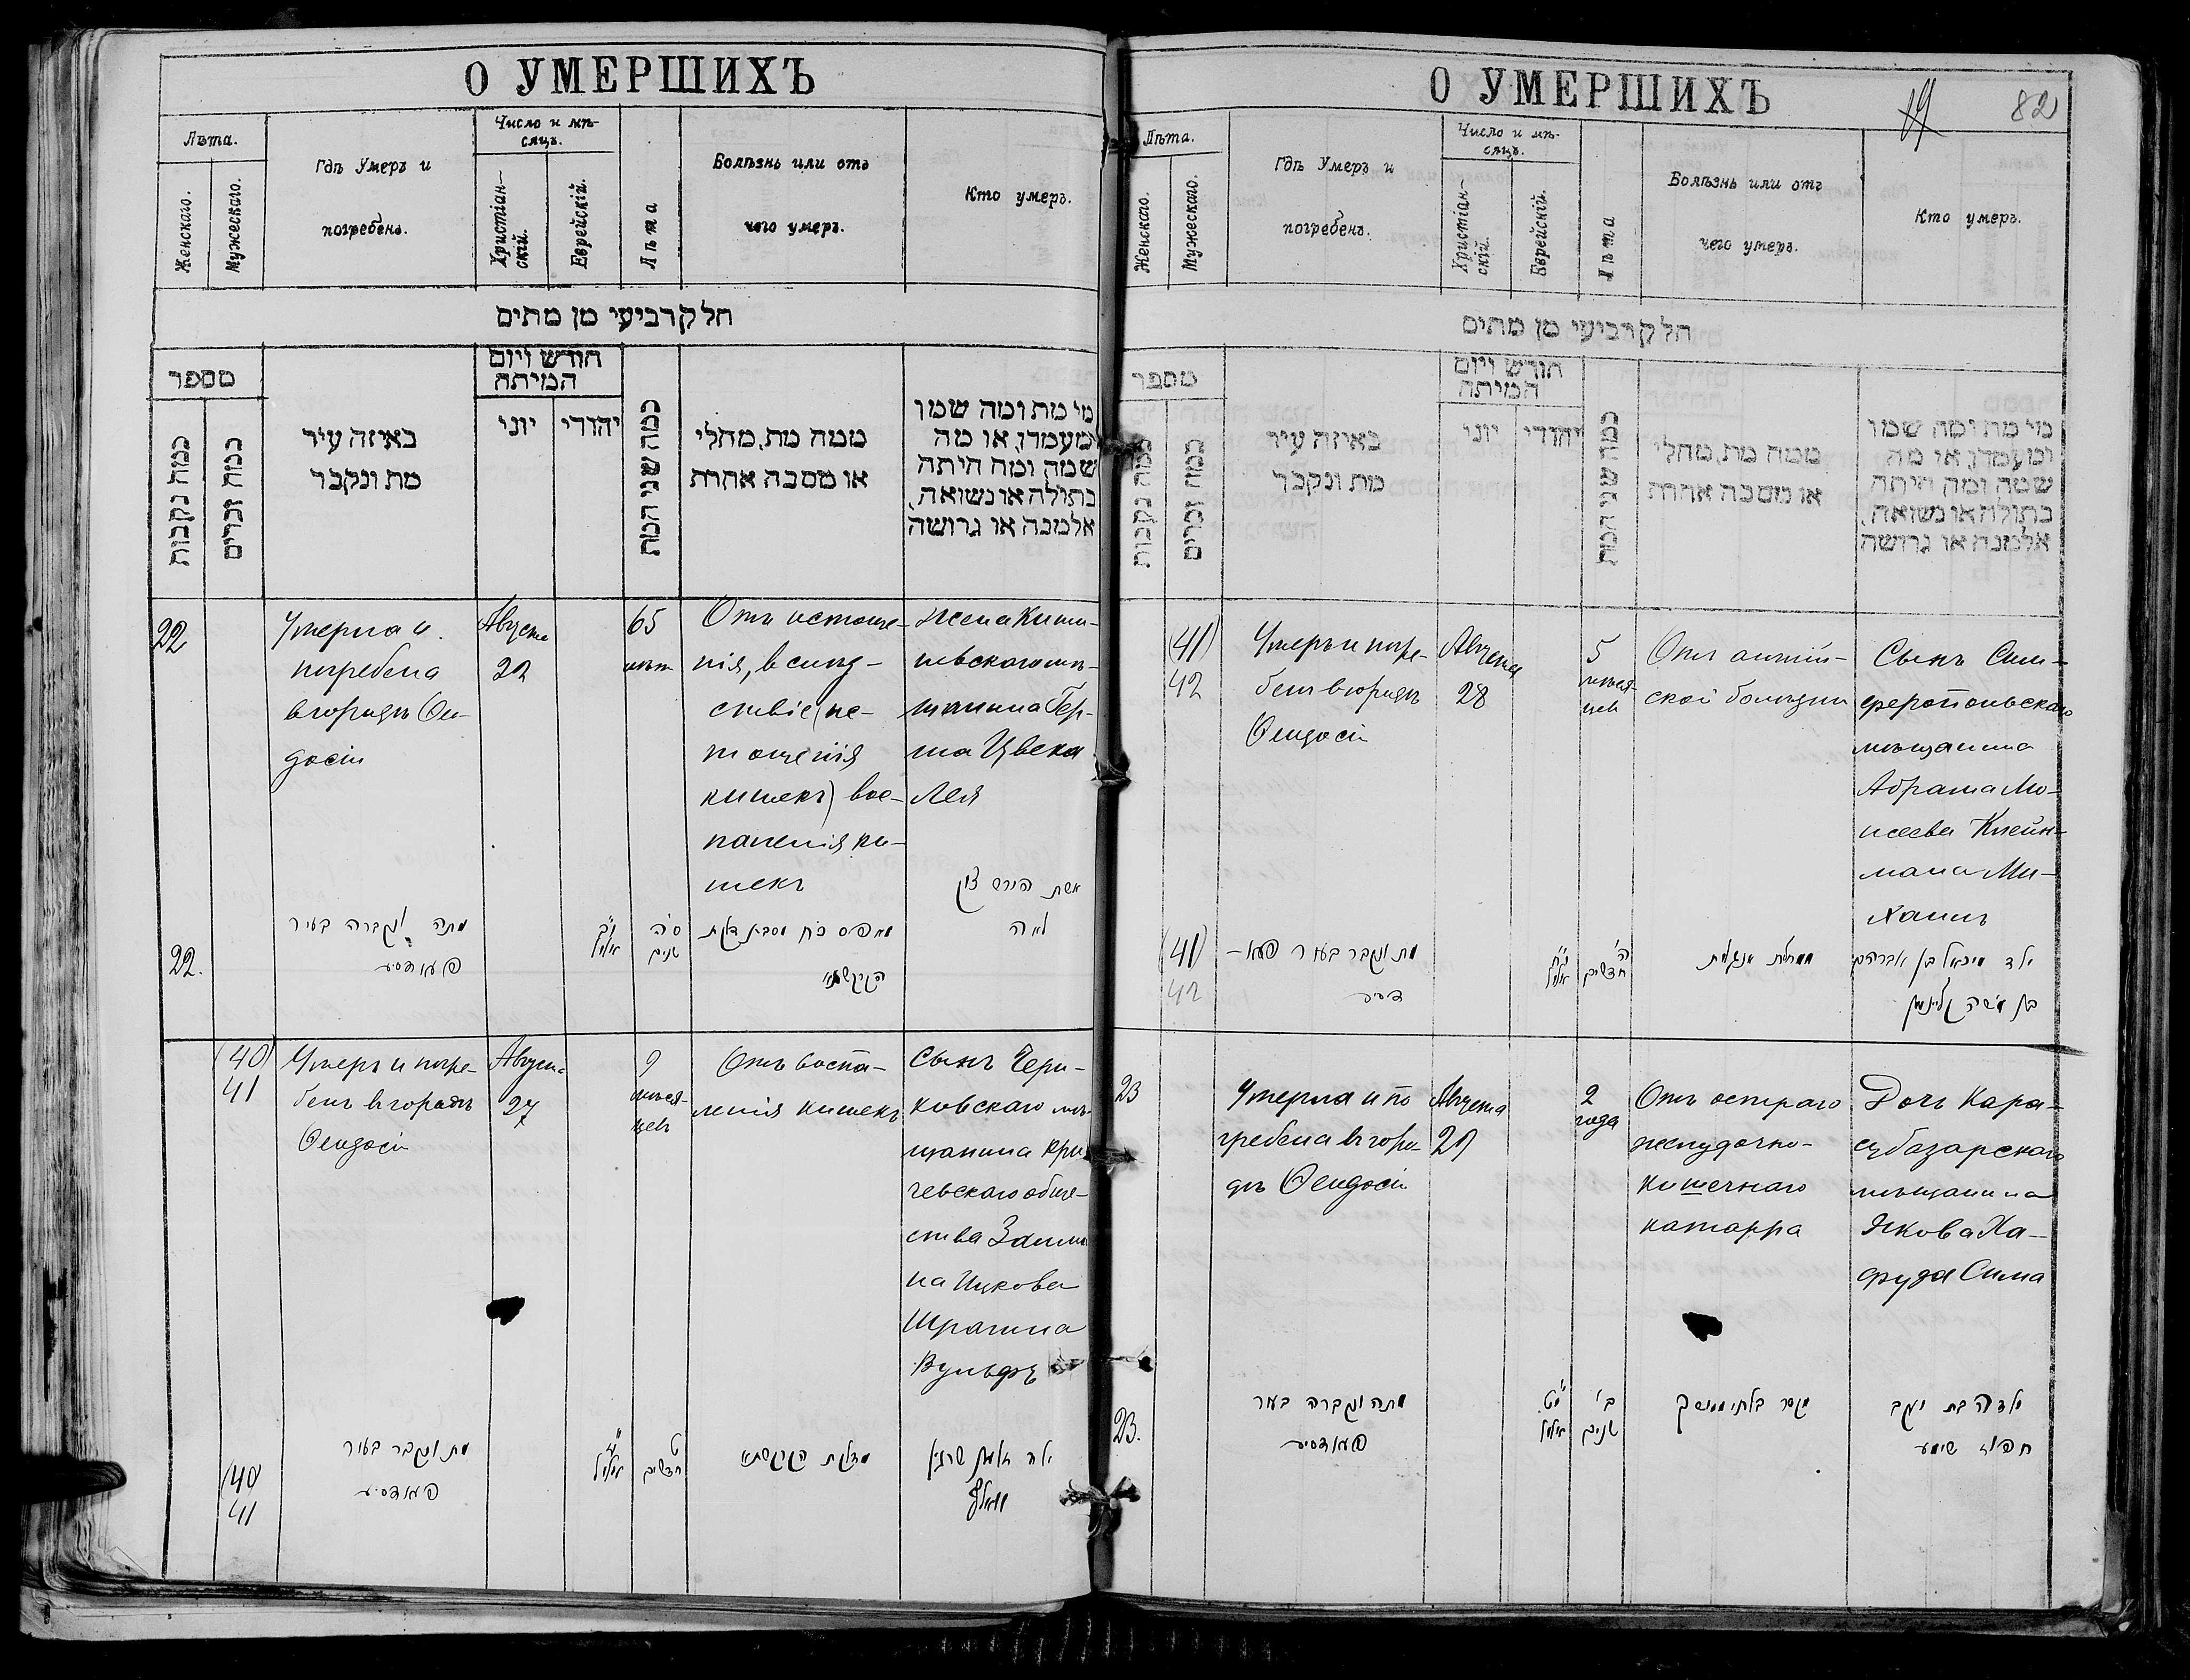 О УМЕРШИХЪ
Лѣта.
Женскаго.
Мужескаго.
Гдѣ Умеръ и
погребенъ.
Число и мѣ-
сяцъ.
Христіан-
скій.
Еврейскій.
Лѣта
Болѣзнь или отъ
чего умеръ.
Кто умеръ.
חלק רביעי מן מתים
מספר
כמה נקבות
כמה זכרים
באיזה עיר
מת ונקבר
חודש ויום
המיתה
יוני
יהודי
כמה שני המת
ממה מת, מחלי
או מסבה אחרת
מי מת ומה שמו
ומעמדו, או מה
שמה ומה היתה
בתולה או נשואה,
אלמנה או גרושה
22
Умерла и
погребена
въ городѣ Ѳео-
досіи
Августа
22
65
лѣтъ
Отъ истоще-
нія, вслѣд-
ствіе (ис-
тощенія
кишекъ) вос-
паленія ки-
шекъ
жена Киши-
невскаго мѣ-
щанина Гер-
ша Цвека
Лея
22.
מתה ונקברה בעיר
פעאדסיע
אלול
ס״ה
שנים
אשת הירש
לאה
(40)
41
Умеръ и погре-
бенъ въ городѣ
Ѳеодосіи
Августа
27
9
мѣся-
цевъ
Отъ воспа-
ленія кишекъ
Сынъ Чери-
ковскаго мѣ-
щанина Кри-
чевскаго обще-
ства Залма-
на Ицкова
Шрагина
Вульфъ
(40)
41
מת ונקבר בעיר
פעאדסיע
אלול
ט
חדשים
מדלקת הקישקות
ילד זלמן שרגין
וואלף
О УМЕРШИХЪ
19
82
Лѣта.
Женскаго.
Мужескаго.
Гдѣ Умеръ и
погребенъ.
Число и мѣ-
сяцъ.
Христіан-
скій.
Еврейскій.
Лѣта
Болѣзнь или отъ
чего умеръ.
Кто умеръ.
חלק רביעי מן מתים
מספר
כמה נקבות
כמה זכרים
באיזה עיר
מת ונקבר
חודש ויום
המיתה
יוני
יהודי
כמה שני המת
ממה מת, מחלי
או מסבה אחרת
מי מת ומה שמו
ומעמדו, או מה
שמה ומה היתה
בתולה או נשואה,
אלמנה או גרושה
(41)
42
Умеръ и погре-
бенъ въ городѣ
Ѳеодосіи
Августа
28
5
мѣся-
цевъ
Отъ англій-
ской болѣзни
Сынъ Сим-
феропольскаго
мѣщанина
Абрама Мо-
исеева Клейн-
мана Ми-
хаилъ
(41)
42
מת ונקבר בעיר פעא-
דסיע
י״ח
אלול
ה׳
חדשים
מחלת אנגלית
ילד מיכאל בן אברהם
בן משה קליינמאן
23
Умерла и по-
гребена въ горо-
дѣ Ѳеодосіи
Августа
29
2
года
Отъ остраго
желудочно-
кишечнаго
катарра
Дочь Кара-
субазарскаго
мѣщанина
Якова Ха-
фуза Сима
23.
מתה ונקברה בעיר
פעאדסיע
י״ט
אלול
ב׳
שנים
ילדה בת יעקב
חפוז סימע